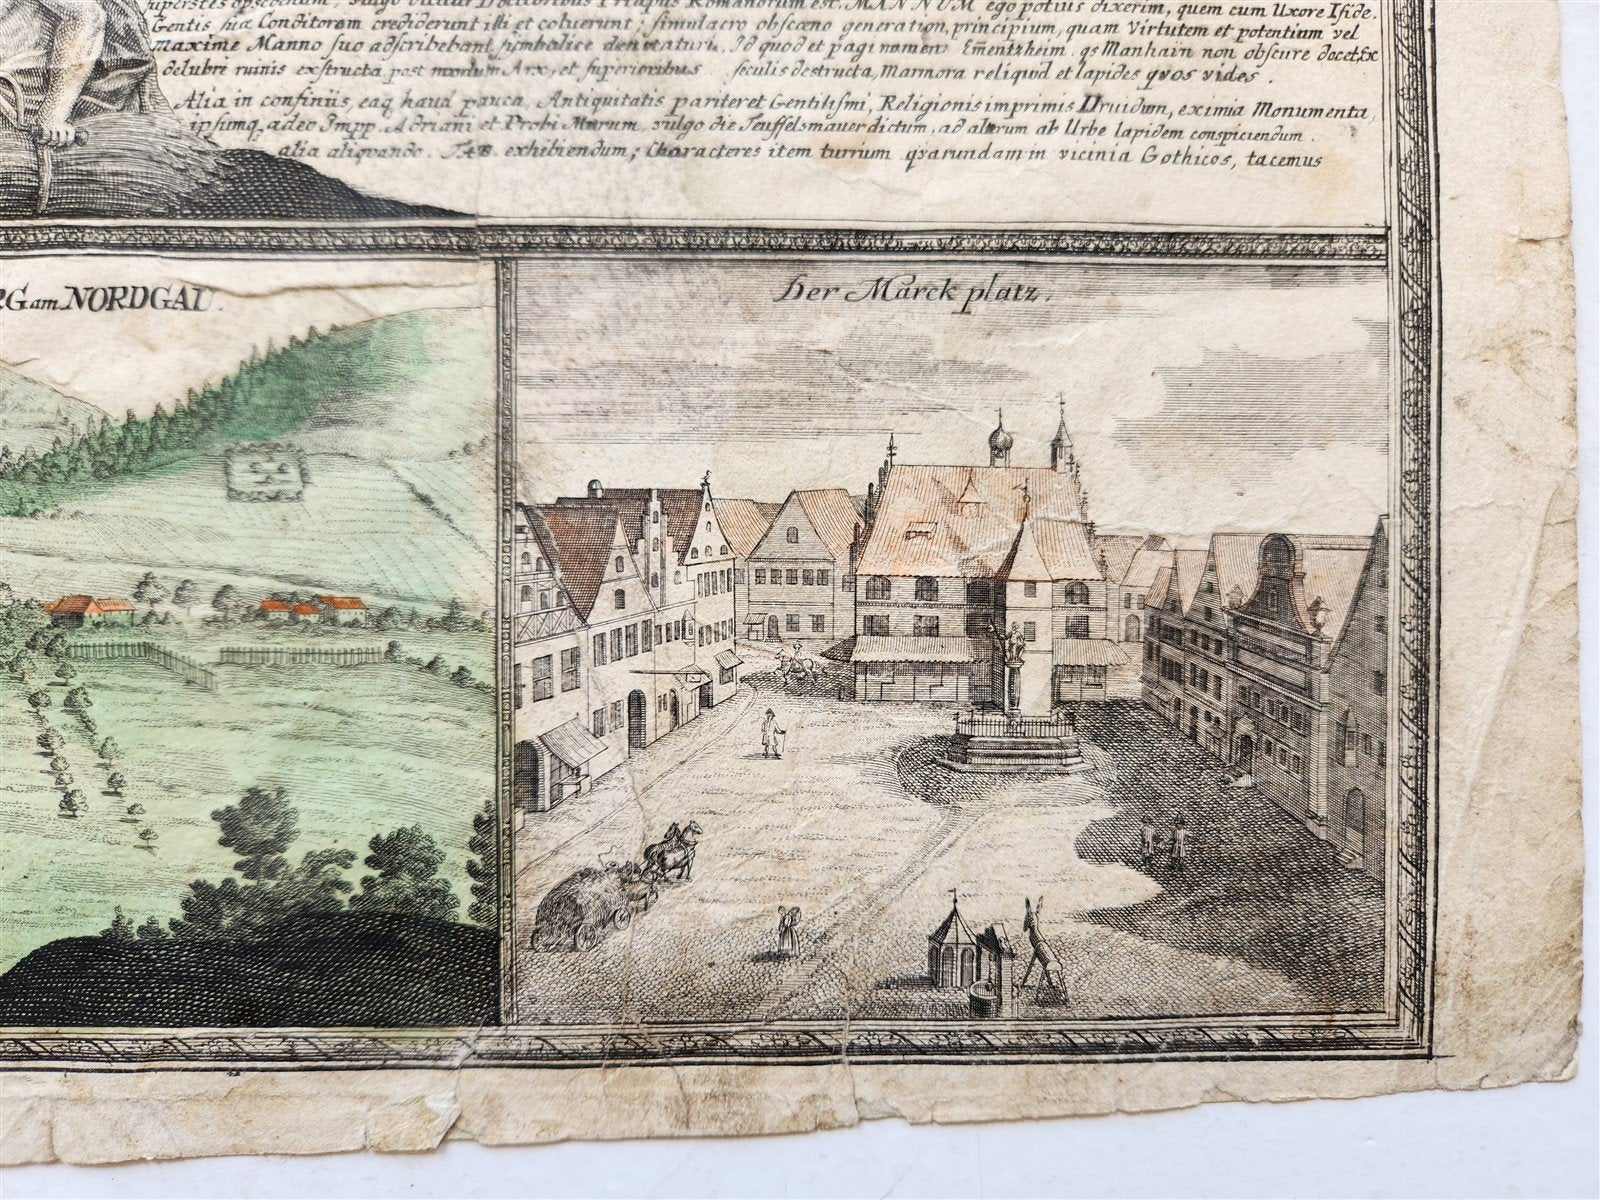 superstes obscoenum, vulgo dicitur Doctoribus Priapus Romanorum est. MANNUM ego potuis dixerim, quem cum Uxore Iside.
Gentis suæ Conditorem crediderunt illi et coluerunt; simulacro obscœno generation, principium, quam Virtutem et potentium vel
maxime Manno suo adscribebant symbolice denotaturi. Id quod et pagi nomen Ementzheim qs Manhain non obscure docet. Ex
delubri ruinis exstructa post modum Arx, et superioribus seculis destructa, Marmora reliquid et lapides qvos vides.
Alia in confiniis, eaq haud pauca, Antiquitatis pariter et Gentilismi, Religionis imprimis Druidum, eximia Monumenta,
ipsumq adeo Impp. Adriani et Probi Murum vulgo die Teuffelsmauer dictum, ad alterum ab Urbe lapidem conspiciendum
alia aliqvando. exhibiendum; Characteres item turrium qvarundam in vicinia Gothicos, tacemus
RG am NORDGAU.
Der Marck platz.